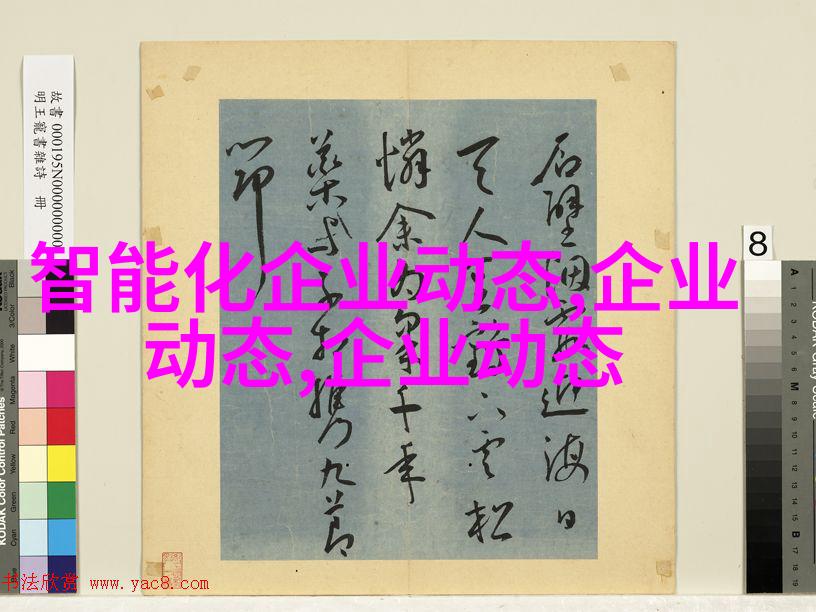 故書 000195N000000000
明王寵書雜詩 冊
石壁烟霞近海日
天人下雲松
憐余為千年
藥子相攜九節
智能化企业动态,企业
动态,企业动态
KODAK Color Control Patches
Black
3/Color
White
Magenta
Red
Yellow
Green
Cyan
8
A 1 2 3 4 5 6 M 8 9 10 11 12 13 14 15 B 17 18 19
书法欣赏 www.yac8.com